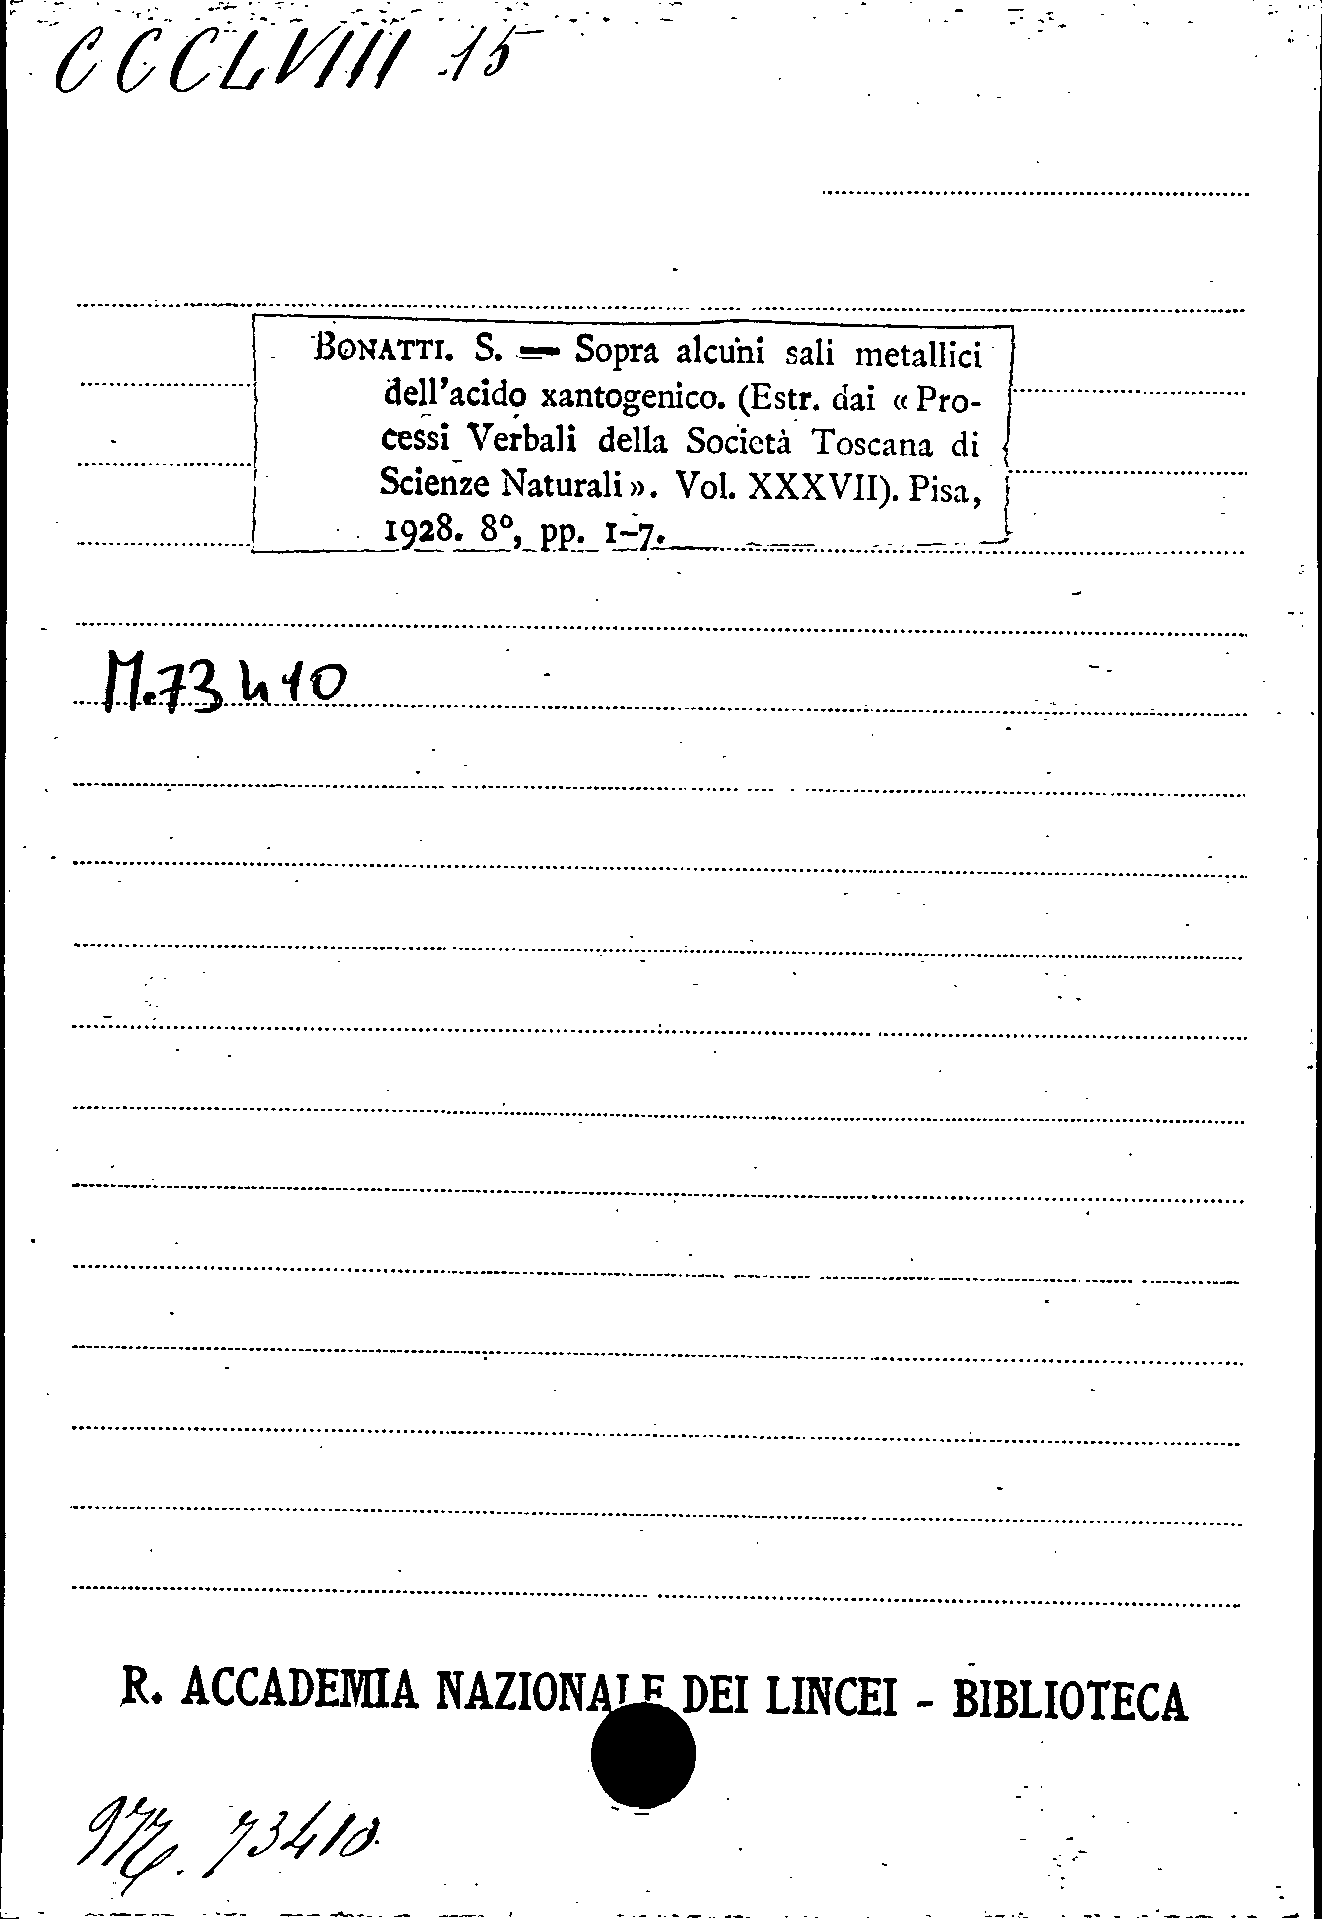 CCCLVIII 15
BONATTI. S. — Sopra alcuni sali metallici
dell'acido xantogenico. (Estr. dai « Pro-
cessi Verbali della Società Toscana di
Scienze Naturali ». Vol. XXXVII). Pisa,
1928. 8°, pp. 1-7.
M.73410
R. ACCADEMIA NAZIONALE DEI LINCEI - BIBLIOTECA
M. 73410